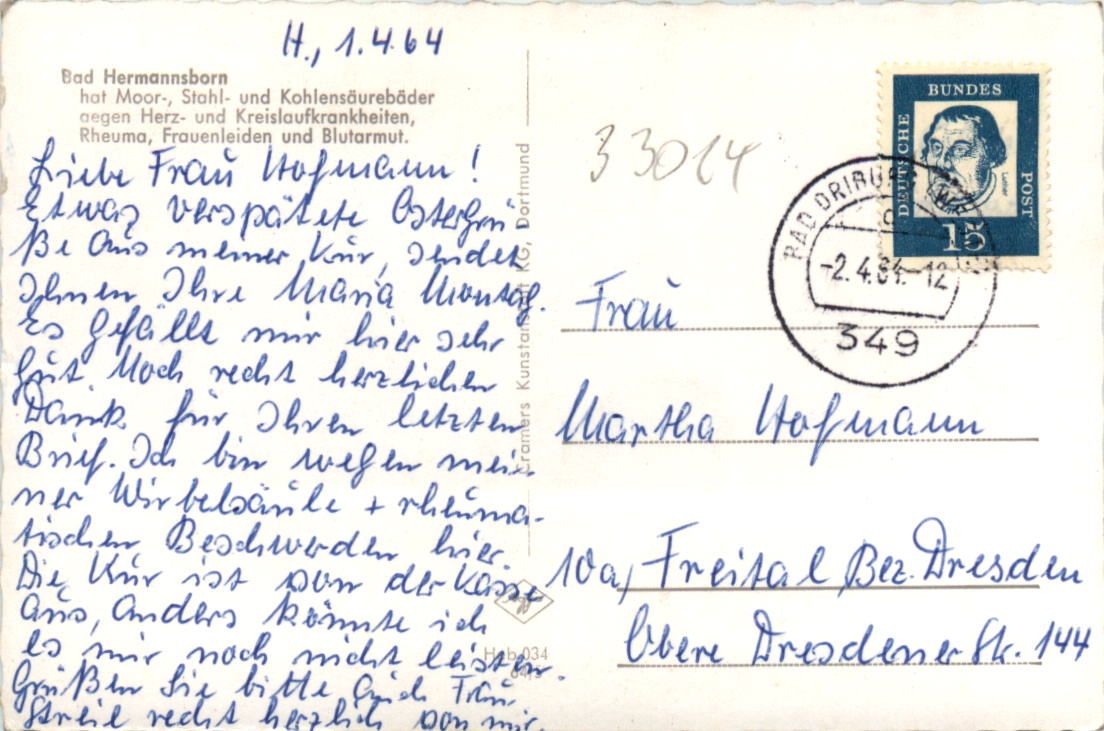 H., 1.4.64
Bad Hermannsborn
hat Moor-, Stahl- und Kohlensäurebäder
gegen Herz- und Kreislaufkrankheiten,
Rheuma, Frauenleiden und Blutarmut.
Liebe Frau Hofmann!
Etwas verspätete Ostergrü
ße aus meiner Kur, sendet
Ihnen Ihre Maria Montag.
Es gefällt mir hier sehr
gut. Noch recht herzlichen
Dank für Ihren letzten
Brief. Ich bin wegen mei-
ner Wirbelsäule + rheuma-
tischen Beschwerden hier.
Die Kur ist von der Kasse
aus, anders könnte ich
es mir noch nicht leisten.
Grüßen Sie bitte auch Frau
Streil recht herzlich von mir.
Cramers Kunstanstalt KG, Dortmund
Heb 034
33014
DEUTSCHE
BUNDES
POST
Luther
15
BAD DRIBURG (W
-2.4.64.-12
349
Frau
Martha Hofmann
10a, Freital Bez. Dresden
Obere Dresdener Str. 144